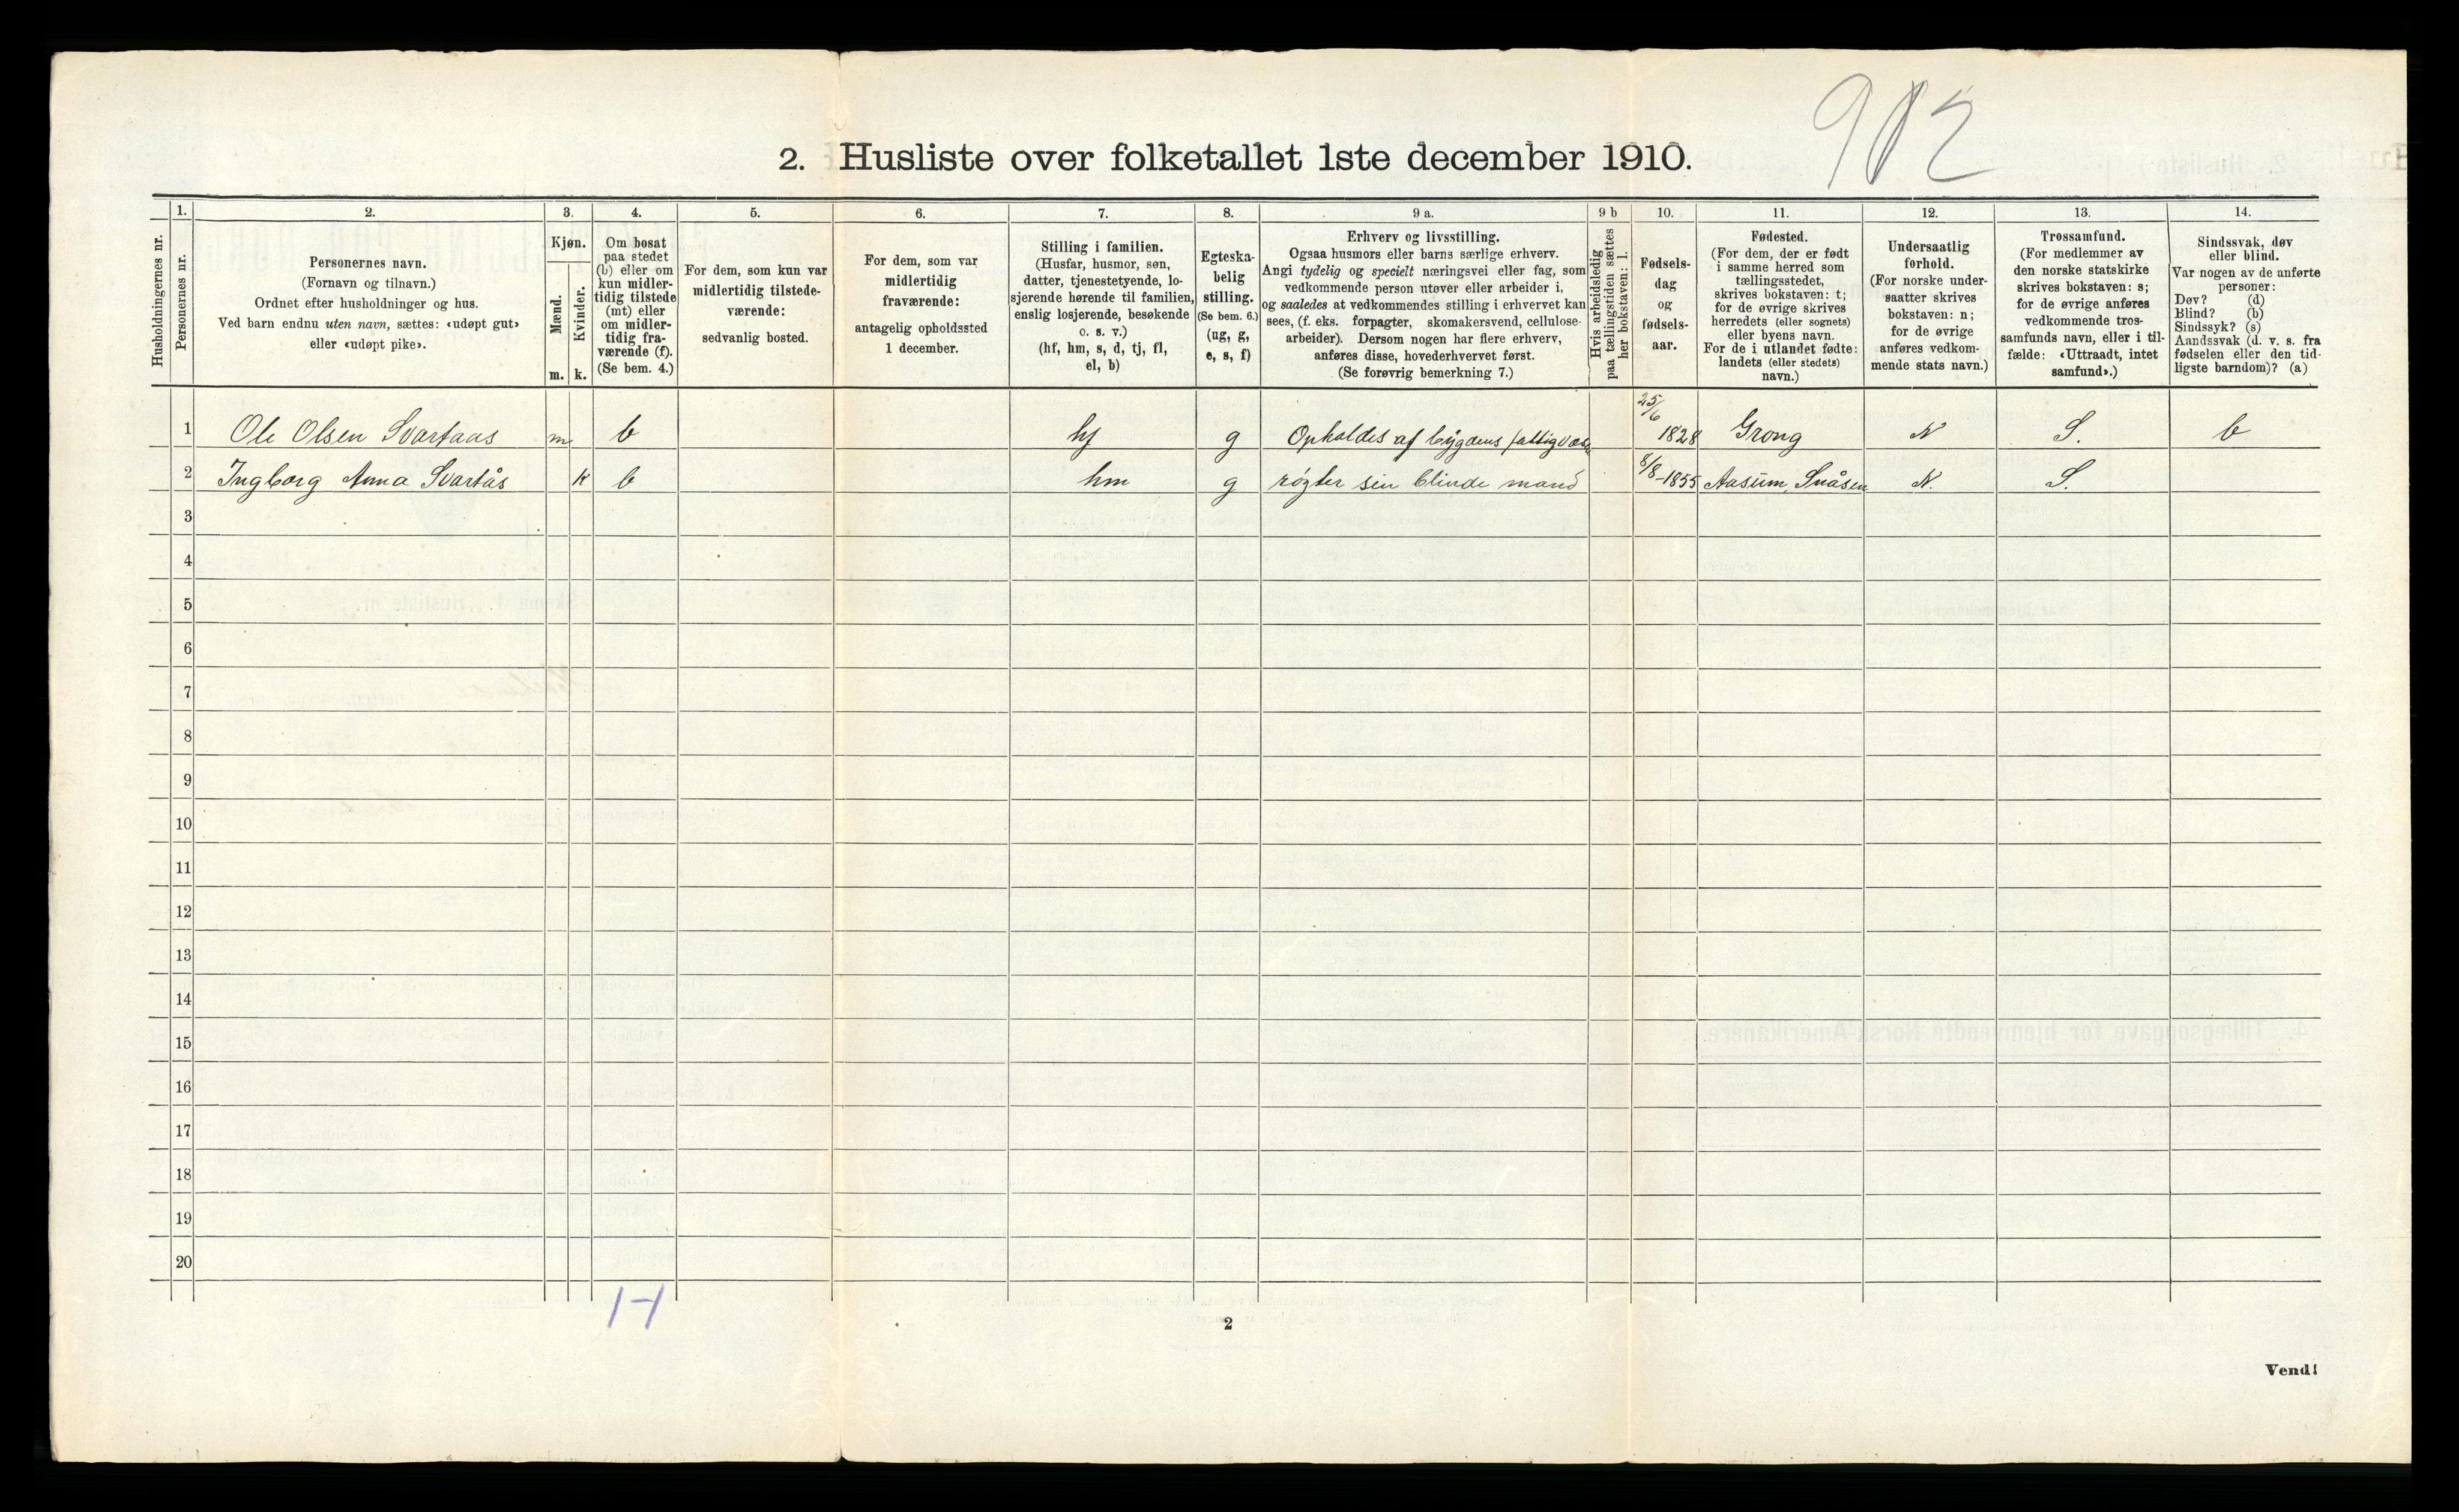 902
2. Husliste over folketallet 1ste december 1910.
Husholdningernes nr.
1.
Personernes nr.
2.
Personernes navn.
(Fornavn og tilnavn.)
Ordnet efter husholdninger og hus.
Ved barn endnu uten navn, sættes: «udøpt gut»
eller «udøpt pike».
3.
Kjøn.
Mænd.
Kvinder.
m. k.
4.
Om bosat
paa stedet
(b) eller om
kun midler-
tidig tilstede
(mt) eller
om midler-
tidig fra-
værende (f).
(Se bem. 4.)
5.
For dem, som kun var
midlertidig tilstede-
værende:
sedvanlig bosted.
6.
For dem, som var
midlertidig
fraværende:
antagelig opholdssted
1 december.
7.
Stilling i familien.
(Husfar, husmor, søn,
datter, tjenestetyende, lo-
sjerende hørende til familien,
enslig losjerende, besøkende
o. s. v.)
(hf, hm, s, d, tj, fl,
el, b)
8.
Egteska-
belig
stilling.
(Se bem. 6.)
(ug, g,
e, s, f)
9 a.
Erhverv og livsstilling.
Ogsaa husmors eller barns særlige erhverv.
Angi tydelig og specielt næringsvei eller fag, som
vedkommende person utøver eller arbeider i,
og saaledes at vedkommendes stilling i erhvervet kan
sees, (f. eks. forpagter, skomakersvend, cellulose-
arbeider). Dersom nogen har flere erhverv,
anføres disse, hovederhvervet først.
(Se forøvrig bemerkning 7.)
9 b
Hvis arbeidsledig
paa tællingstiden sættes
her bokstaven: l.
10.
Fødsels-
dag
og
fødsels-
aar.
11.
Fødested.
(For dem, der er født
i samme herred som
tællingsstedet,
skrives bokstaven: t;
for de øvrige skrives
herredets (eller sognets)
eller byens navn.
For de i utlandet fødte:
landets (eller stedets)
navn.)
12.
Undersaatlig
forhold.
(For norske under-
saatter skrives
bokstaven: n;
for de øvrige
anføres vedkom-
mende stats navn.)
13.
Trossamfund.
(For medlemmer av
den norske statskirke
skrives bokstaven: s;
for de øvrige anføres
vedkommende tros-
samfunds navn, eller i til-
fælde: «Uttraadt, intet
samfund».)
14.
Sindssvak, døv
eller blind.
Var nogen av de anførte
personer:
Døv? (d)
Blind? (b)
Sindssyk? (s)
Aandssvak (d. v. s. fra
fødselen eller den tid-
ligste barndom)? (a)
1 Ole Olsen Svartaas m b hf g Opholdes af bygdens fattigvæsen 25/6 1828 Grong N S. b
2 Ingborg Anna Svartås k b hm g røgter sin blinde mand 8/8-1855 Aasum, Snåsen N. S.
3
4
5
6
7
8
9
10
11
12
13
14
15
16
17
18
19
20
1-1
2
Vend!